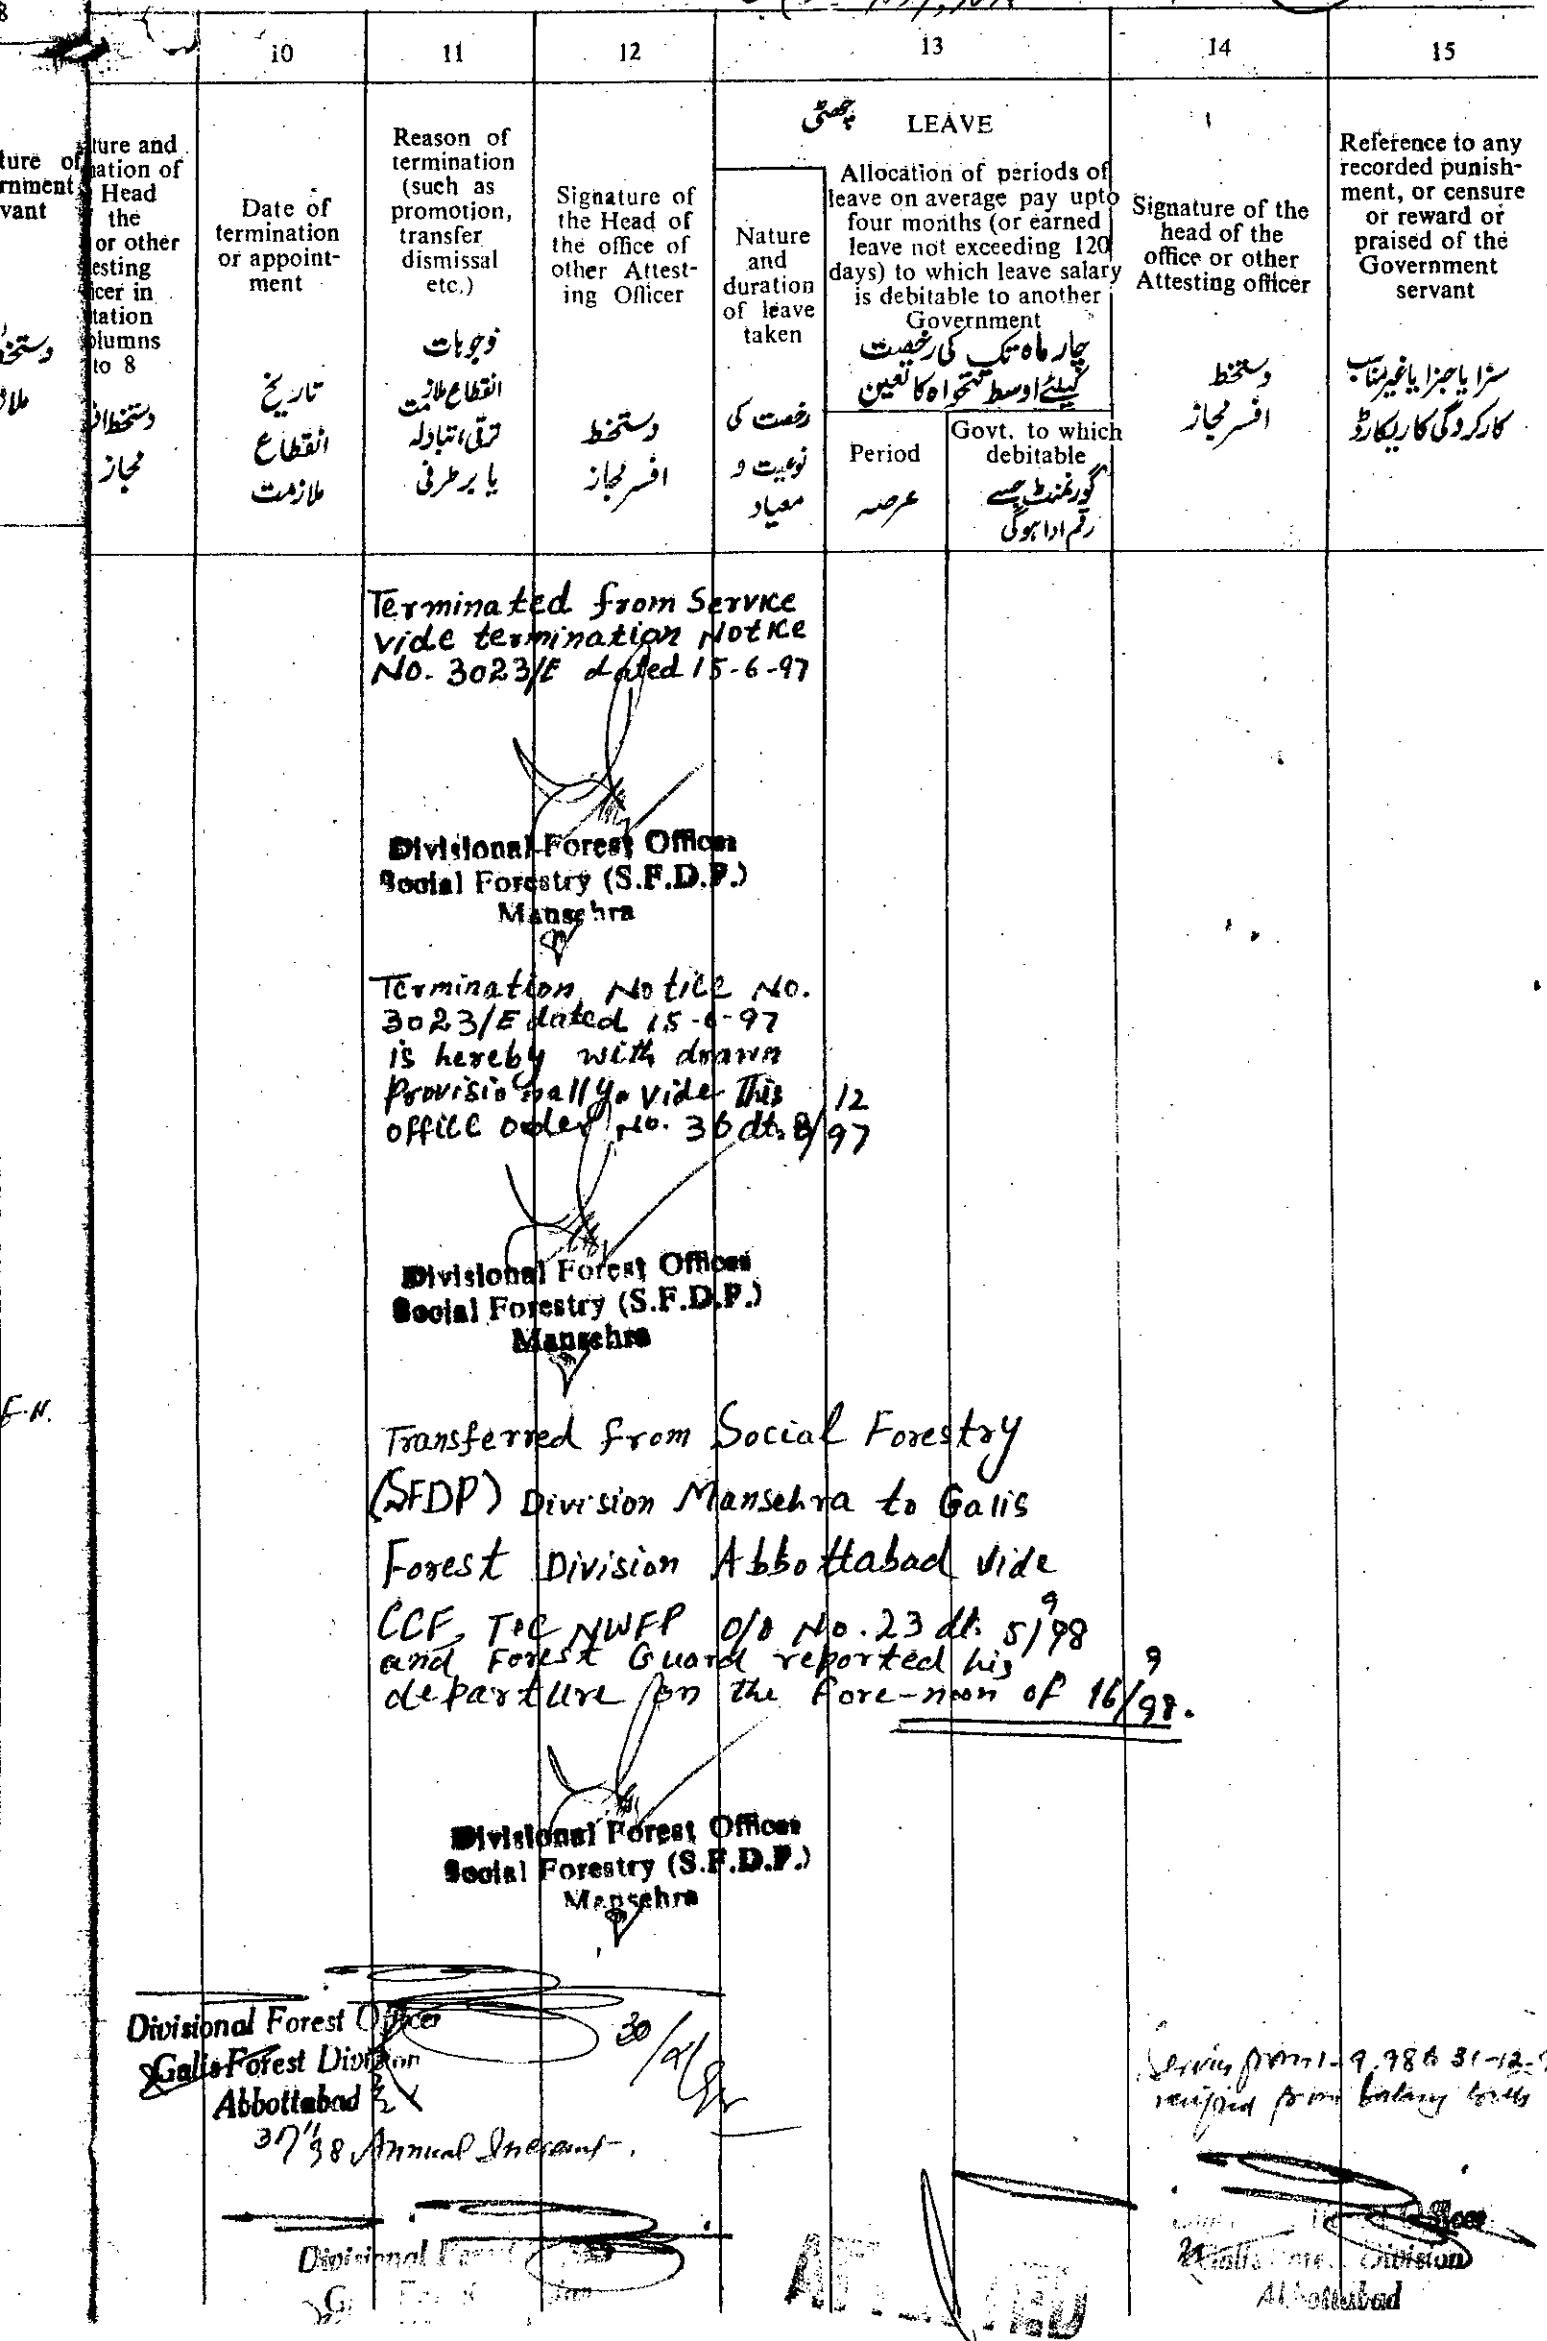 10
11
12
13
14
15
ture of
rnment
vant
ture and
ation of
Head
the
or other
esting
cer in
tation
olumns
to 8
دستخط
مجاز
Date of
termination
or appoint-
ment
تاریخ
انقطاع
ملازمت
Reason of
termination
(such as
promotion,
transfer
dismissal
etc.)
وجوہات
انقطاع ملازمت
ترقی، تبادلہ
یا برطرفی
Signature of
the Head of
the office of
other Attest-
ing Officer
دستخط
افسر مجاز
چھٹی
LEAVE
Nature
and
duration
of leave
taken
رخصت کی
نوعیت و
معیاد
Allocation of periods of
leave on average pay upto
four months (or earned
leave not exceeding 120
days) to which leave salary
is debitable to another
Government
چار ماہ تک کی رخصت
کیلئے اوسط تنخواہ کا تعین
Period
عرصہ
Govt. to which
debitable
گورنمنٹ جسے
رقم ادا ہوگی
Signature of the
head of the
office or other
Attesting officer
دستخط
افسر مجاز
Reference to any
recorded punish-
ment, or censure
or reward or
praised of the
Government
servant
سزا یا جزا یا غیر مناسب
کارکردگی کا ریکارڈ
Terminated from Service
vide termination Notice
No. 3023/E dated 15-6-97
Divisional Forest Officer
Social Forestry (S.F.D.P.)
Mansehra
Termination Notice No.
3023/E dated 15-6-97
is hereby with drawn
provisionally vide This
office order No. 36 dt. 8/12/97
Divisional Forest Officer
Social Forestry (S.F.D.P.)
Mansehra
F.N.
Transferred from Social Forestry
(SFDP) Division Mansehra to Galis
Forest Division Abbottabad vide
CCF, NWFP o/o No. 23 dt. 5/9/98
and Forest Guard reported his
departure on the Fore-noon of 16/9/98.
Divisional Forest Officer
Social Forestry (S.F.D.P.)
Mansehra
Divisional Forest Officer
Galis Forest Division
Abbottabad
Annual
from 1-9.98 to 31-12-
from
Divisional
Division
Abbottabad
ATTESTED